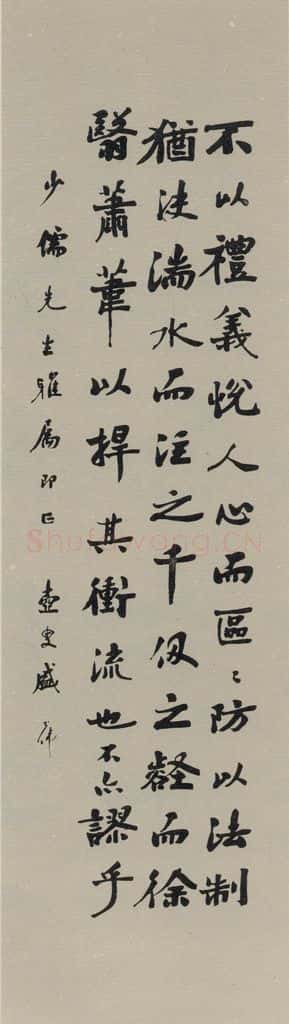 不以禮義悅人心而區〻防以法制
猶決湍水而注之千仞之壑而徐
翳蕭葦以捍其衝流也不亦謬乎
少儒先生雅屬即正 壺叟盛
Shufawong.CN